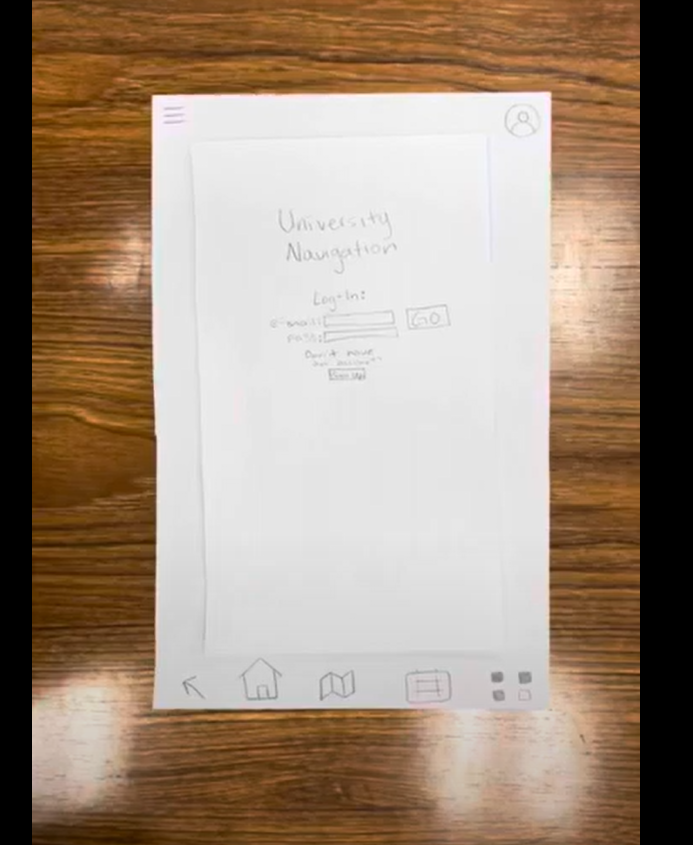 University
Navigation
Log-In:
e-mail: GO
pass:
Don't have
an account?
Sign Up